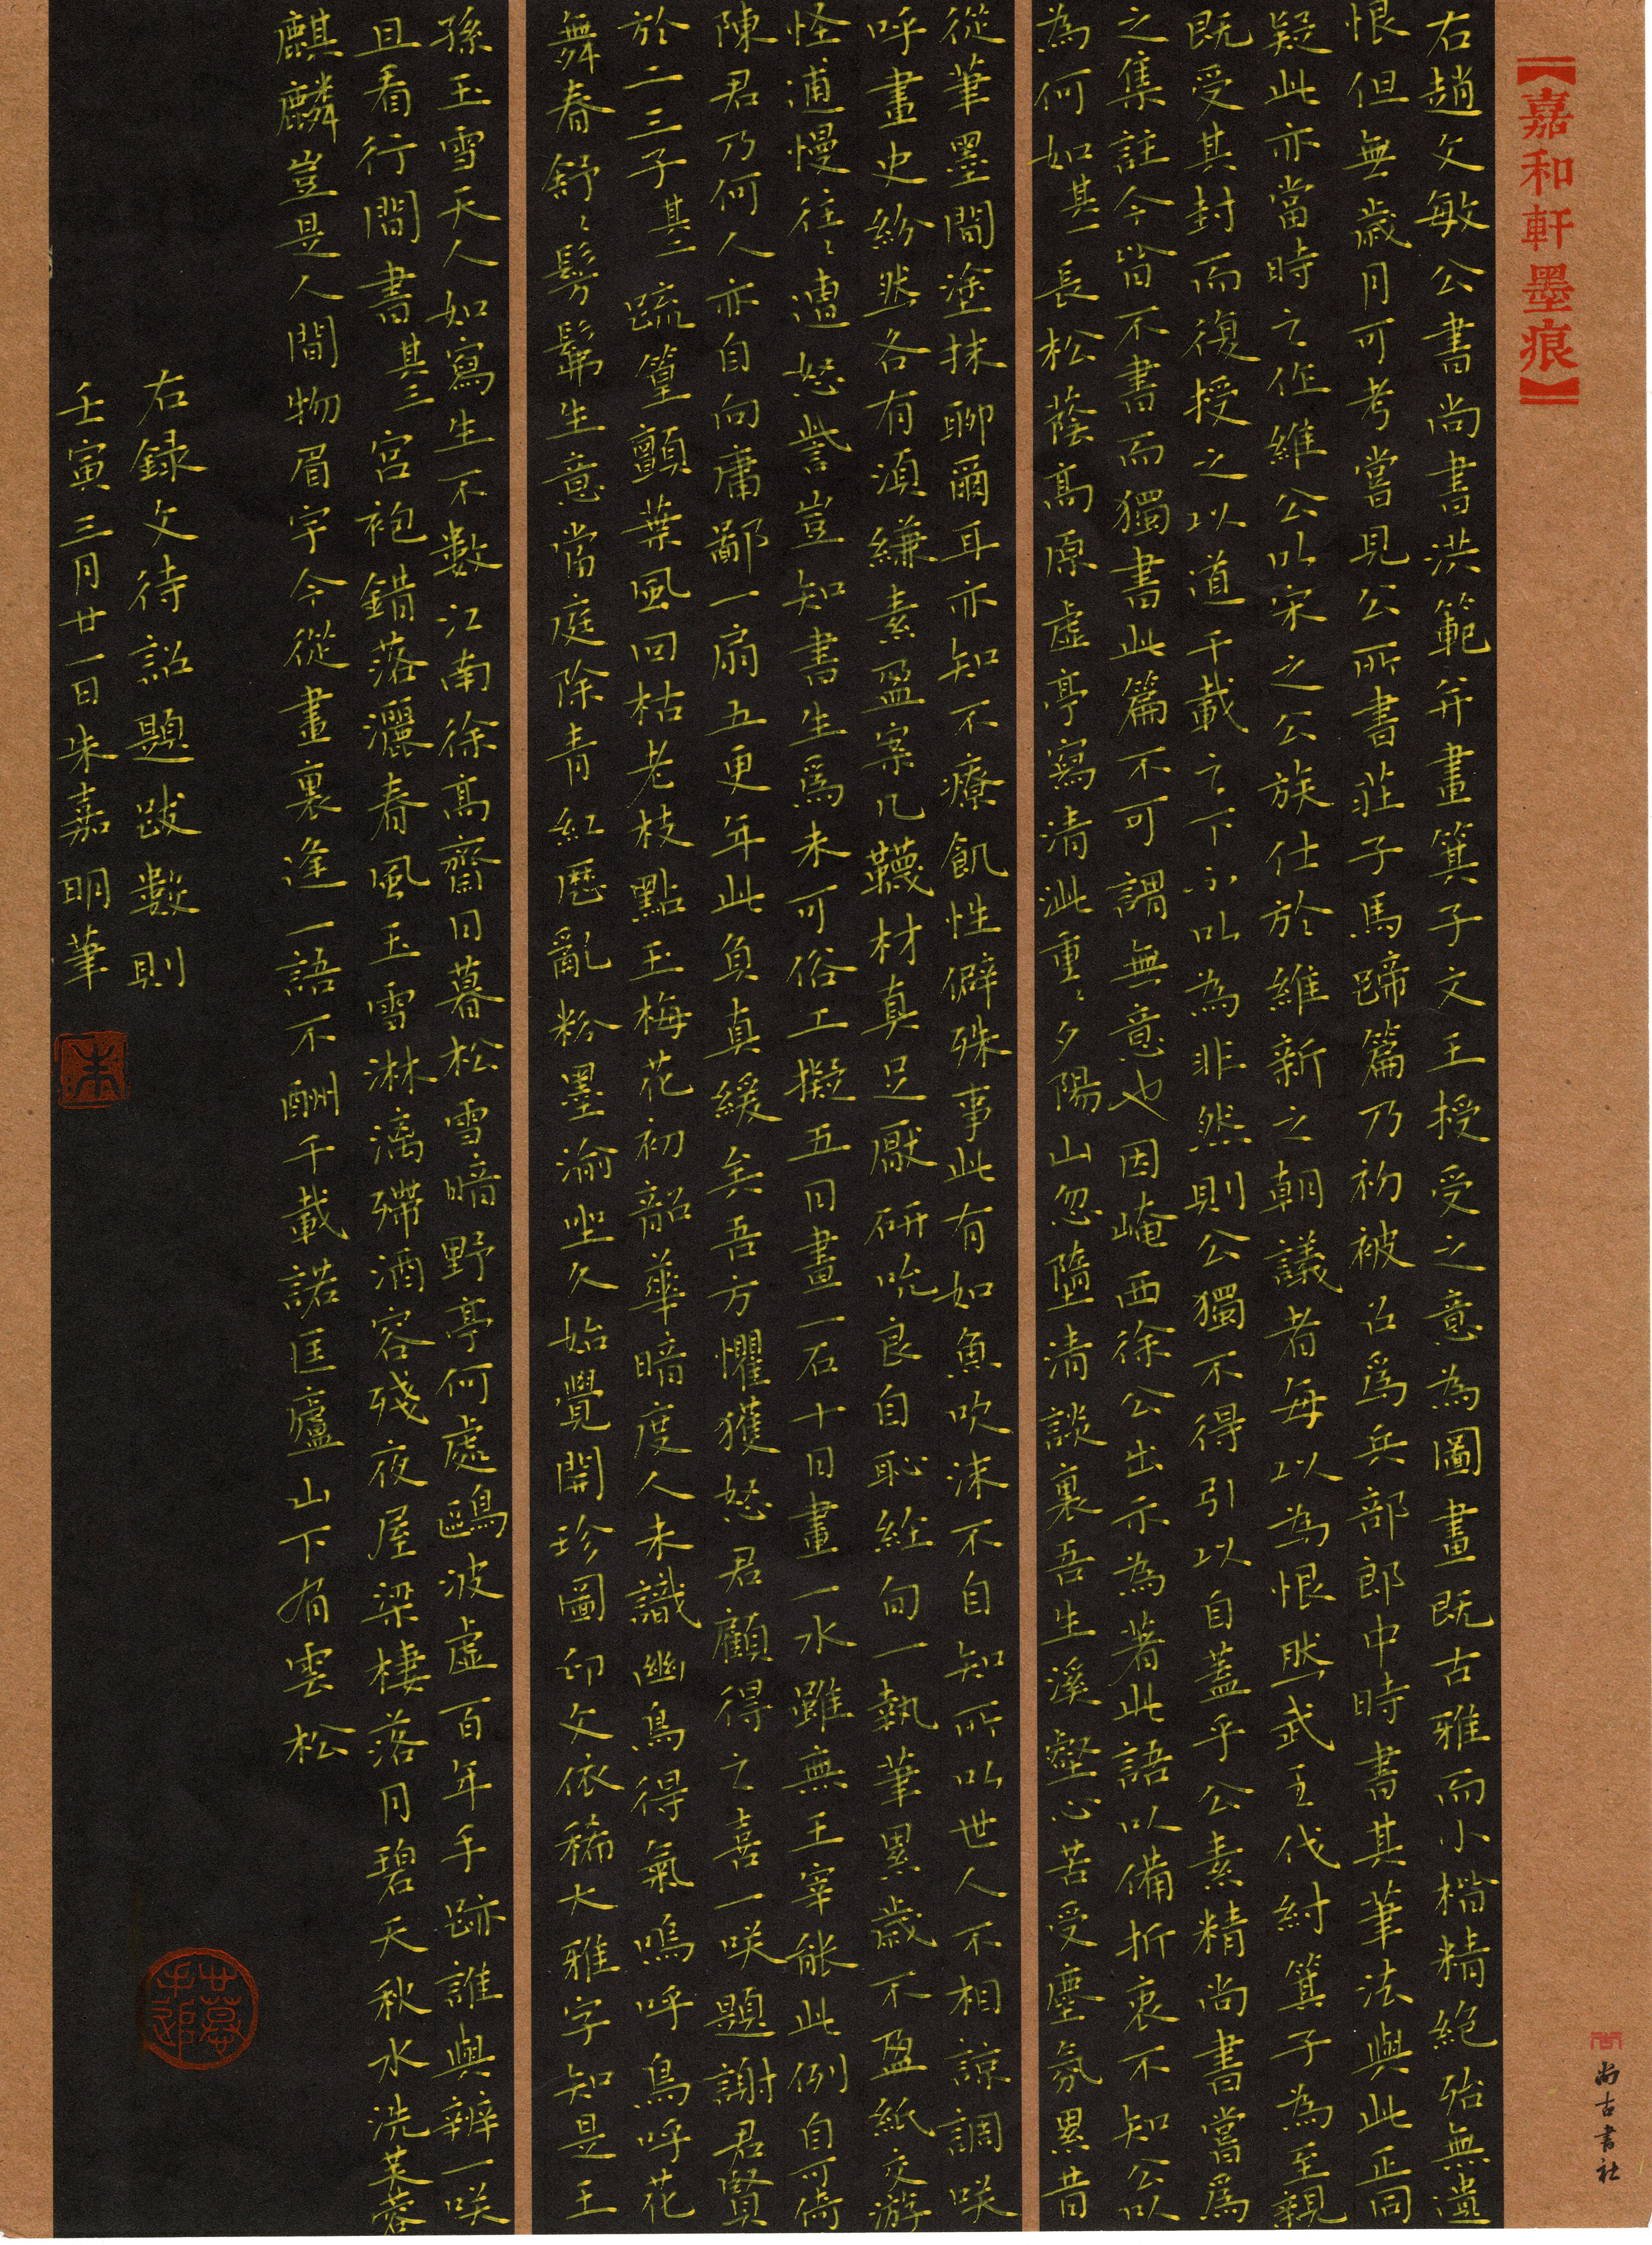 【嘉和軒墨痕】
右趙文敏公書尚書洪範并畫箕子文王授受之意為圖畫既古雅而小楷精絕殆無遺
恨但無歲月可考嘗見公所書莊子馬蹄篇乃初被召爲兵部郎中時書其筆法與此正同
疑此亦當時之作維公以宋之公族仕於維新之朝議者每以為恨然武王伐紂箕子為至親
既受其封而復授之以道千載之下不以為非然則公獨不得引以自蓋乎公素精尚書嘗爲
之集註今皆不書而獨書此篇不可謂無意也因崦西徐公出示為著此語以備折衷不知公以
為何如其一長松蔭高原虛亭寫清泚重〻夕陽山忽墮清談裏吾生溪壑心苦受塵氛累昔
從筆墨間塗抹聊爾耳亦知不療飢性僻殊事此有如魚吹沫不自知所以世人不相諒調咲
呼畫史紛然各有須縑素盈案几韈材真足厭研吮良自恥經旬一執筆累歲不盈紙交游
怪逋慢往〻遭怒訾豈知書生爲未可俗工擬五日畫一石十日畫一水雖無王宰能此例自可倚
陳君乃何人亦自向庸鄙一扇五更年此負真緩矣吾方懼獲怒君顧得之喜一咲題謝君賢
於二三子其二疏篁顫葉風回枯老枝點玉梅花初韶華暗度人未識幽鳥得氣鳴呼鳥呼花
舞春舒〻髣髴生意當庭除青紅歷亂粉墨渝坐久始覺開珍圖印文依稀大雅字知是王
孫玉雪天人如寫生不數江南徐高齋日暮松雪暗野亭何處鷗波虛百年手跡誰與辨一咲
且看行間書其三宮袍錯落灑春風玉雪淋漓殢酒容殘夜屋梁棲落月碧天秋水洗芙蓉
麒麟豈是人間物眉宇今從畫裏逢一語不酬千載諾匡廬山下有雲松
右録文待詔題跋數則
壬寅三月廿一日朱嘉明筆
朱
尚古書社